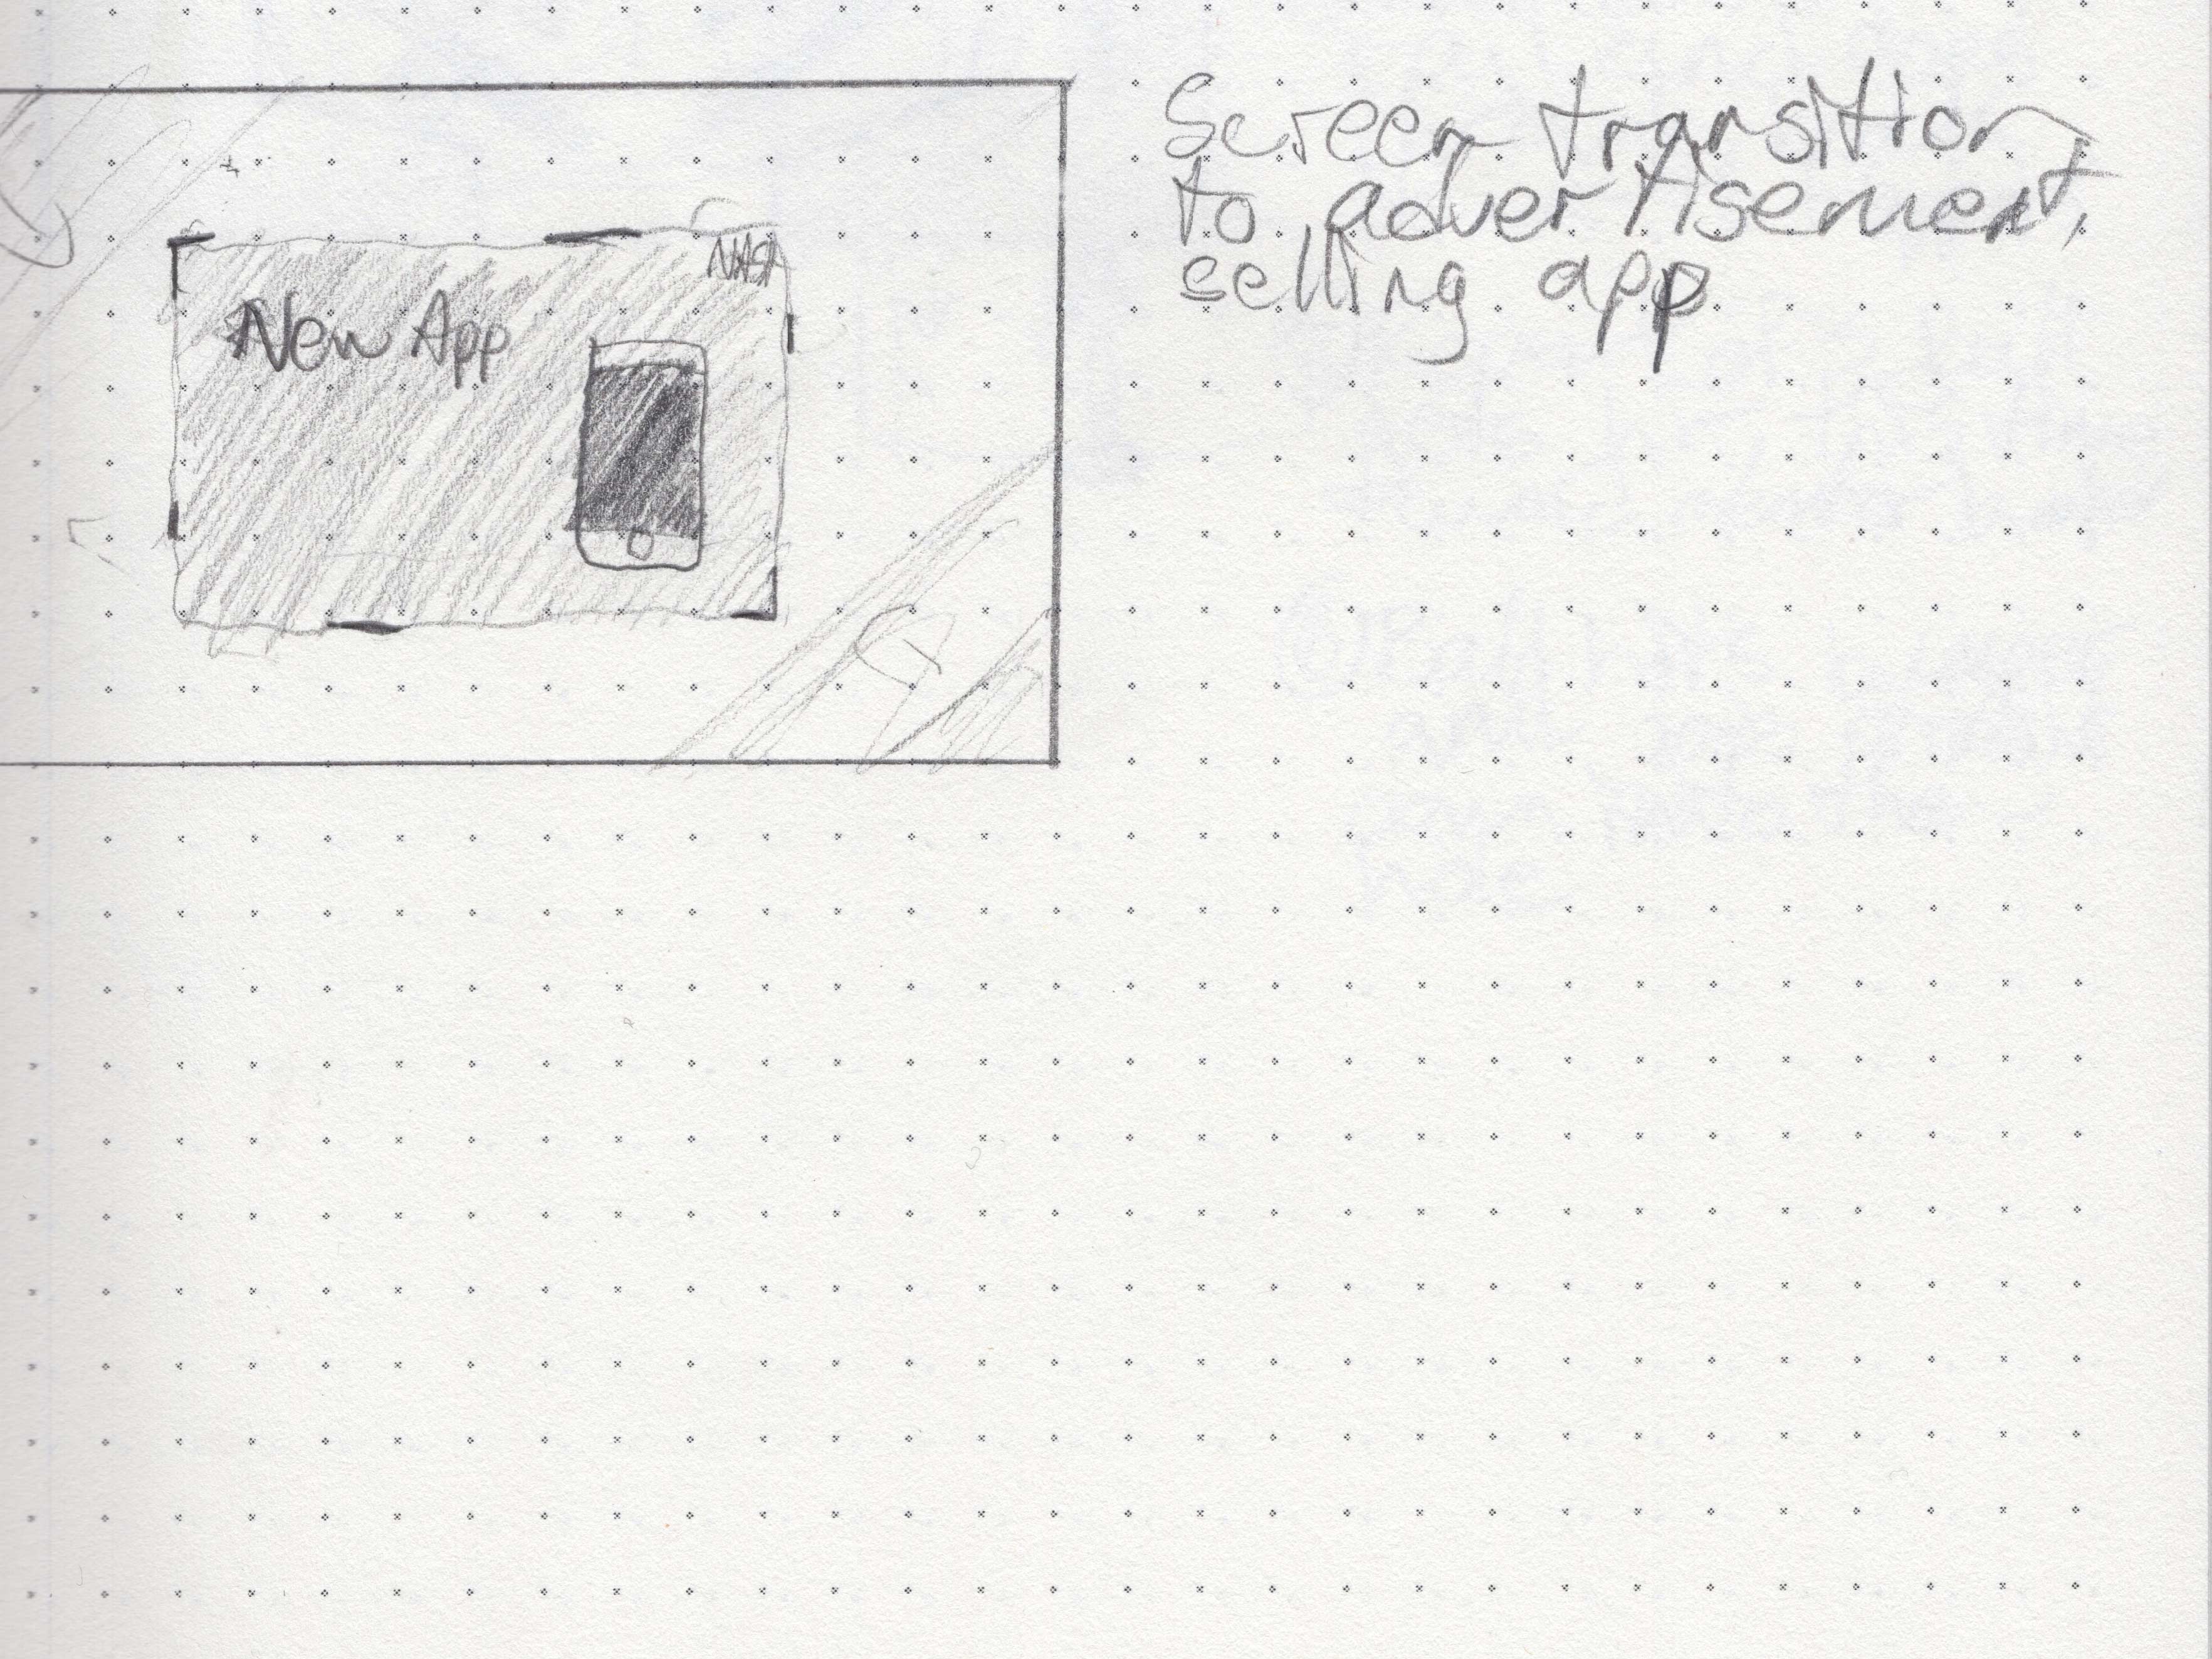 New App
NASA
Screen transition
to advertisement,
selling app